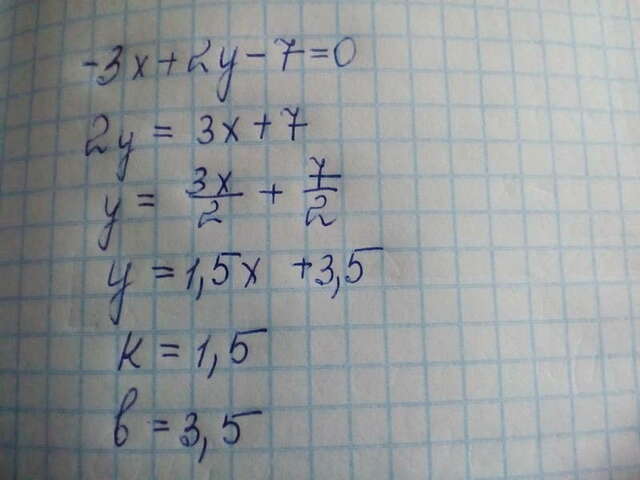 -3x+2y-7=0
2y = 3x+7
y = 3x/2 + 7/2
y =1,5x +3,5
к =1,5
в =3,5